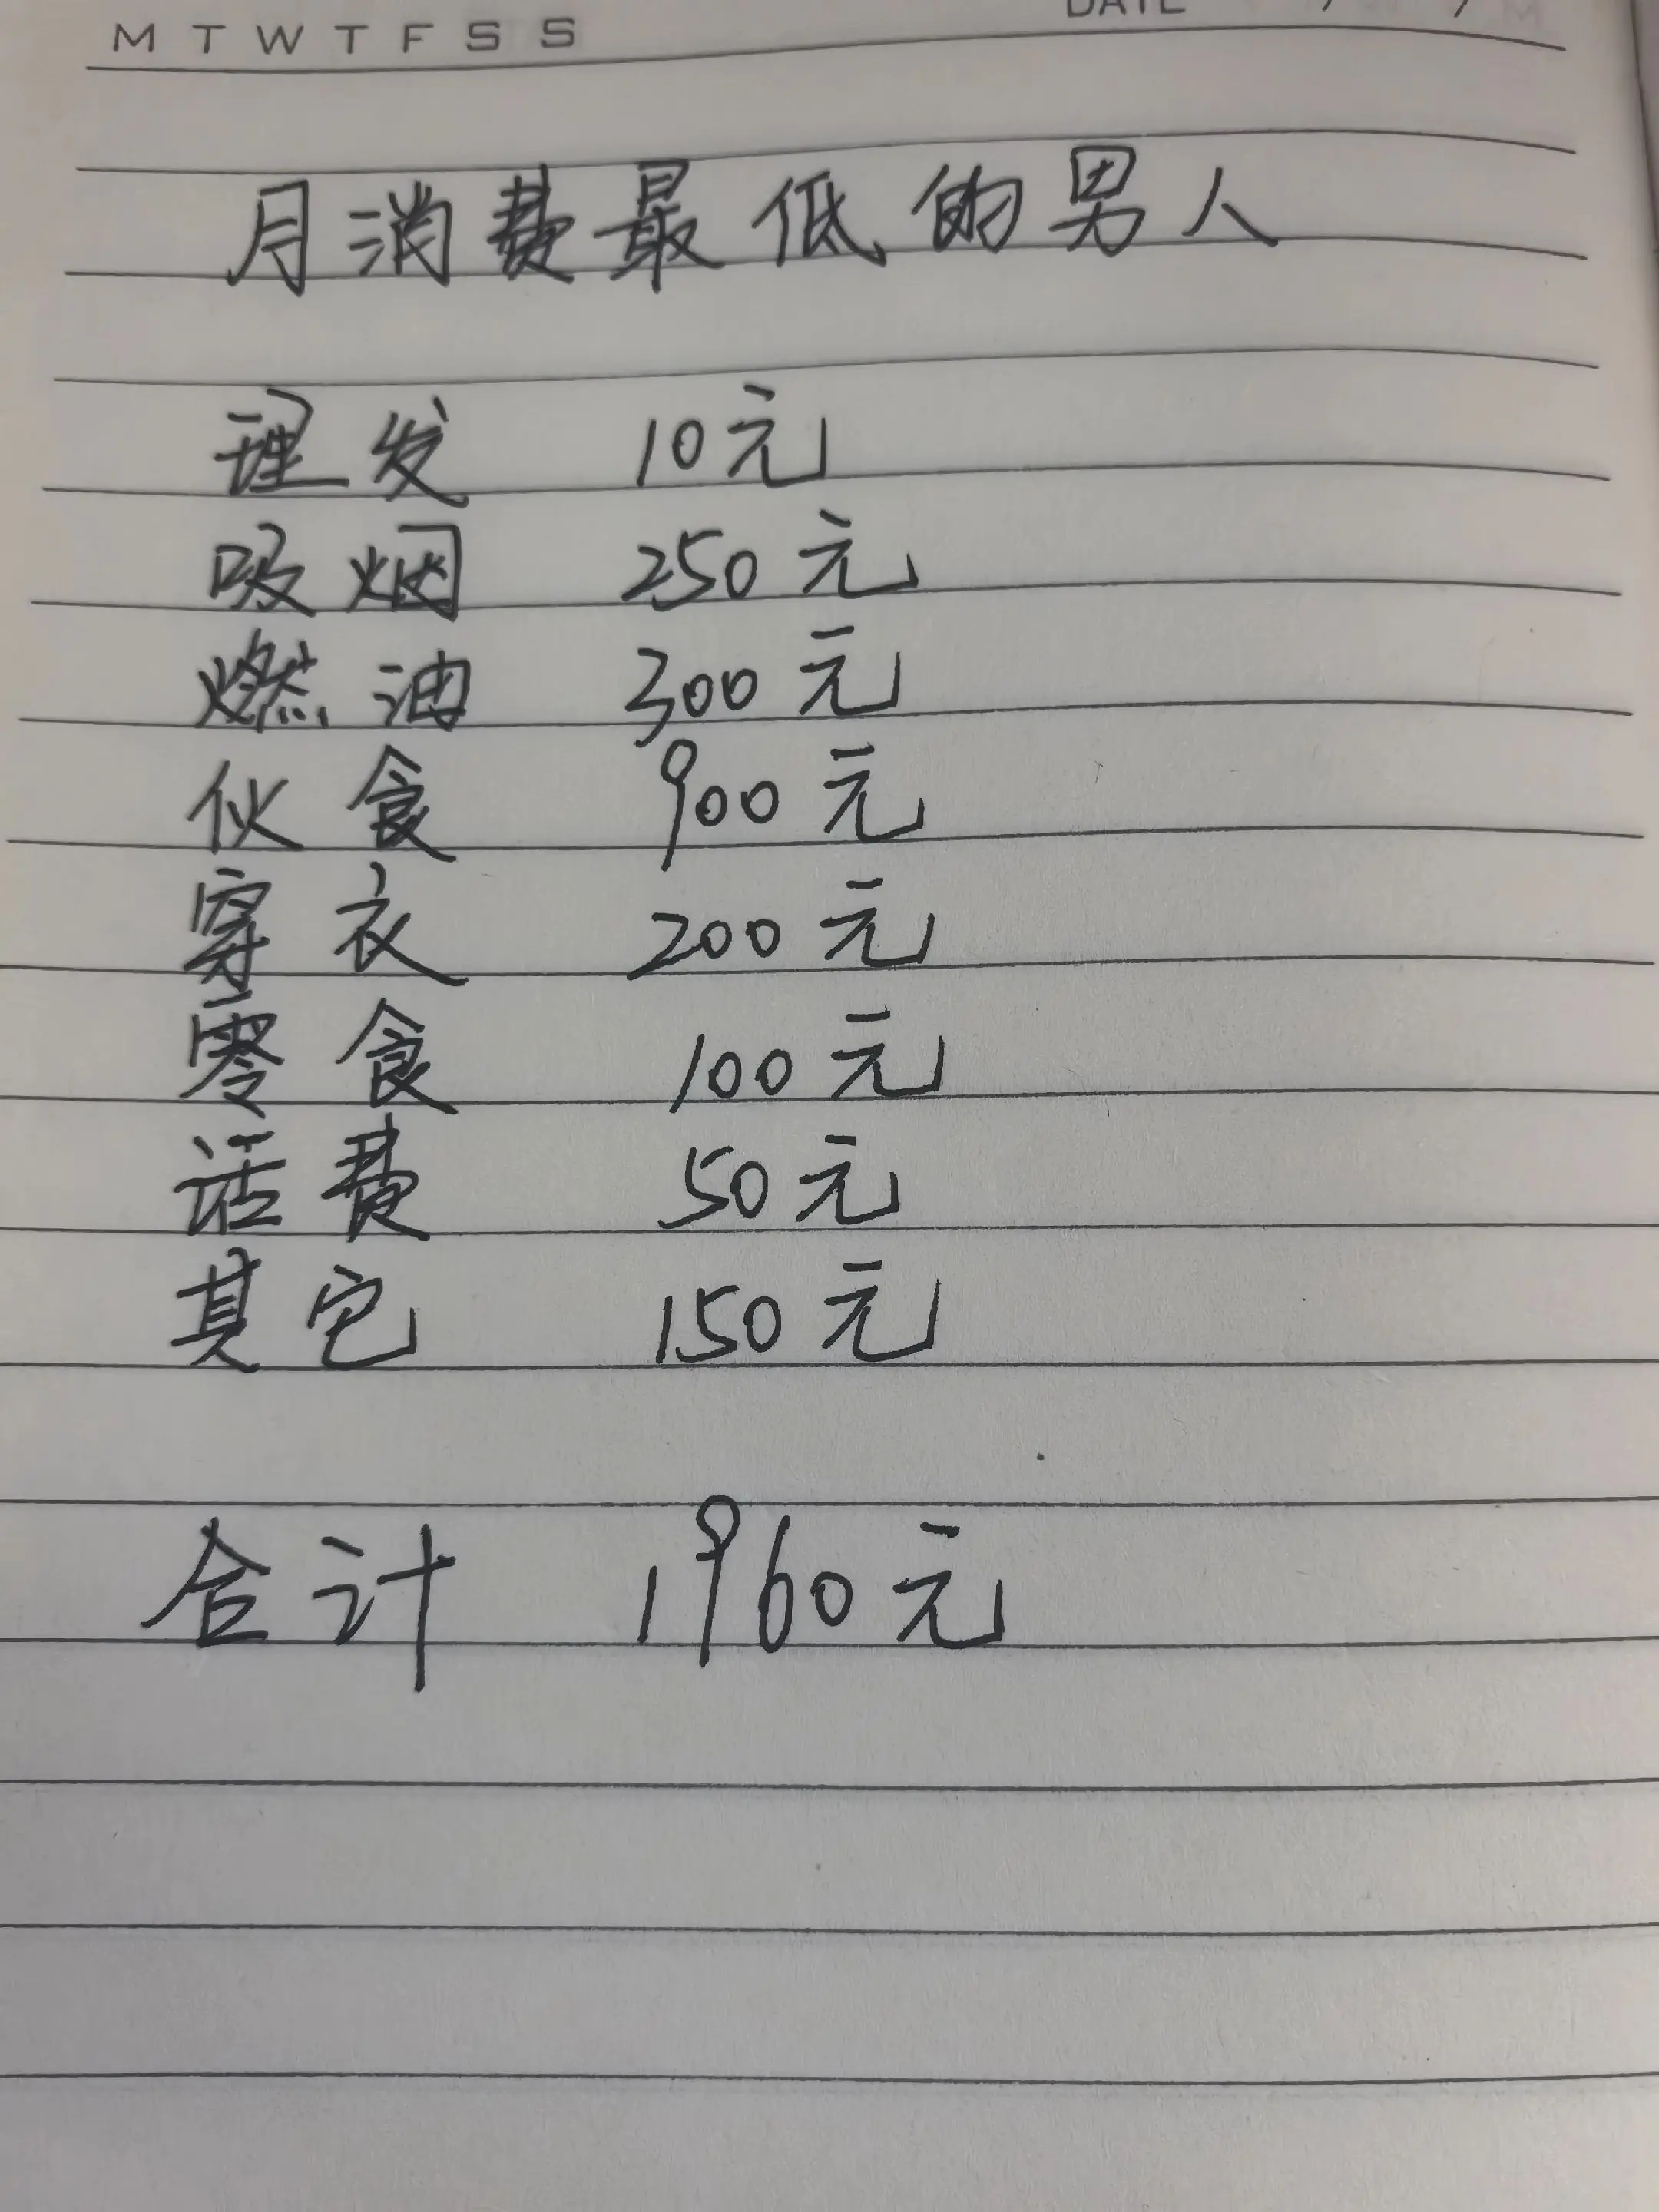 M T W T F S S
DATE / /
月消费最低的男人
理发 10元
吸烟 250元
燃油 300元
伙食 900元
穿衣 200元
零食 100元
话费 50元
其它 150元
合计 1960元